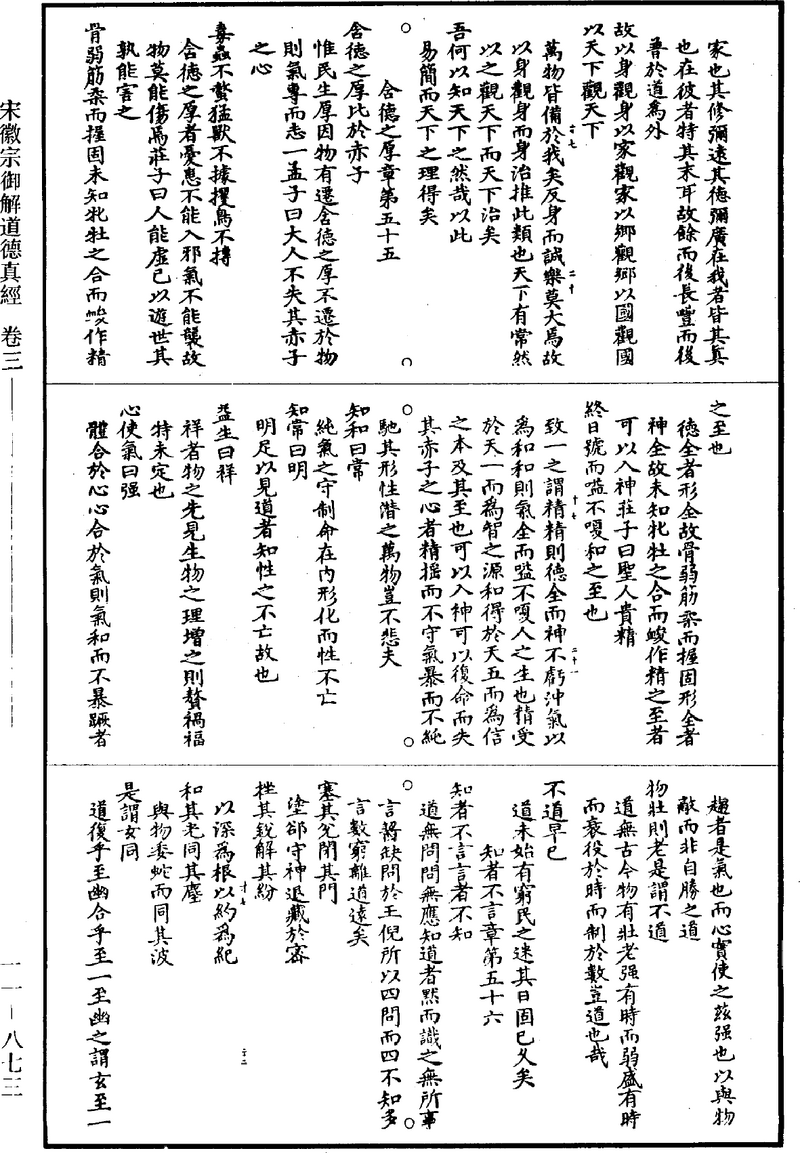 家也其修彌遠其德彌廣在我者皆其真
也在彼者特其末耳故餘而後長豐而後
普於道為外
故以身觀身以家觀家以鄉觀鄉以國觀國
以天下觀天下
十七
萬物皆備於我矣反身而誠樂莫大焉故
二十
以身觀身而身治推此類也天下有常然
以之觀天下而天下治矣
吾何以知天下之然哉以此
易簡而天下之理得矣
含德之厚章第五十五
含德之厚比於赤子
惟民生厚因物有遷含德之厚不遷於物
則氣專而志一孟子曰大人不失其赤子
之心
毒蟲不螫猛獸不據攫鳥不搏
含德之厚者憂患不能入邪氣不能襲故
物莫能傷焉莊子曰人能虛己以遊世其
孰能害之
骨弱筋柔而握固未知牝牡之合而峻作精
之至也
德全者形全故骨弱筋柔而握固形全者
神全故未知牝牡之合而峻作精之至者
可以入神莊子曰聖人貴精
終日號而嗌不嗄和之至也
十七
致一之謂精精則德全而神不虧沖氣以
二十一
為和和則氣全而嗌不嗄人之生也精受
於天一而為智之源和得於天五而為信
之本及其至也可以入神可以復命而失
其赤子之心者精揺而不守氣暴而不純
馳其形性潛之萬物豈不悲夫
知和曰常
純氣之守制命在內形化而性不亡
知常曰明
明足以見道者知性之不亡故也
益生曰祥
祥者物之先見生物之理增之則贅禍福
特未定也
心使氣曰强
體合於心心合於氣則氣和而不暴蹶者
趨者是氣也而心實使之茲强也以與物
敵而非自勝之道
物壯則老是謂不道
道無古今物有壯老强有時而弱盛有時
而衰役於時而制於數豈道也哉
不道早已
道未始有窮民之迷其日固已久矣
知者不言章第五十六
知者不言言者不知
道無問問無應知道者默而識之無所事
言齧缺問於王倪所以四問而四不知多
言數窮離道遠矣
塞其兌閉其門
塗郤守神退藏於密
挫其銳解其紛
十七
以深為根以約為紀
和其光同其塵
二十二
與物委蛇而同其波
是謂玄同
道復乎至幽合乎至一至幽之謂玄至一
宋徽宗御解道德真經 卷三
一一－八七三